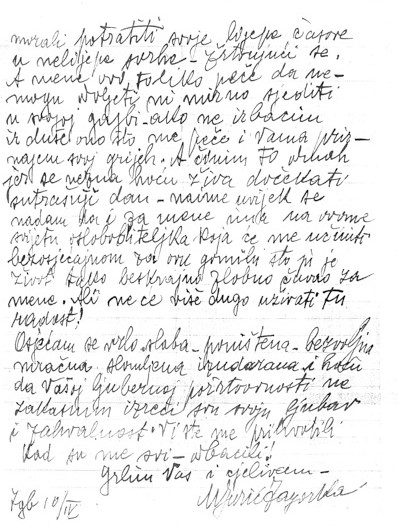 morali potratiti svoje lijepe časove
u nelijepa svrhe - žrtvujući se.
A mene ovo toliko peče da ne-
mogu voljeti ni mirno sjediti
u svojoj gajbi - ako ne izbacim
iz duše ono što me peče i Vama priz-
najem svoj grijeh. A činim to odmah
jer se nezna hoću živa dočekati
sutrašnji dan - naime uvijek se
nadam da i za mene ima na ovome
svijetu osloboditeljka koja će me učiniti
bezosjećajnom za ovu gomilu što ju je
život tako beskrajno zlobno čuvao za
mene. Ali ne će više dugo uživati tu
radost!
Osjećam se vrlo slaba - poništena - bezvoljna
mračna slomljena izudarana i hoću
da Vašoj ljubavnoj požrtvovnosti ne
zakasnim izreći svu svoju ljubav
i zahvalnost. Vi ste me prihvatili
kad su me svi - odbacili!
Grlim Vas i cjelivam -
MJurić Zagorka
Zgb 10/IV